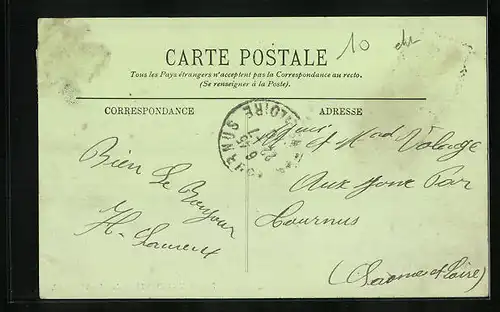 10
CARTE POSTALE
Tous les Pays étrangers n'acceptent pas la Correspondance au recto.
(Se renseigner à la Poste).
CORRESPONDANCE
ADRESSE
Bien le Bonjour
H. Laurent
et Mad
Aux
Tournus
(Saone et Loire)